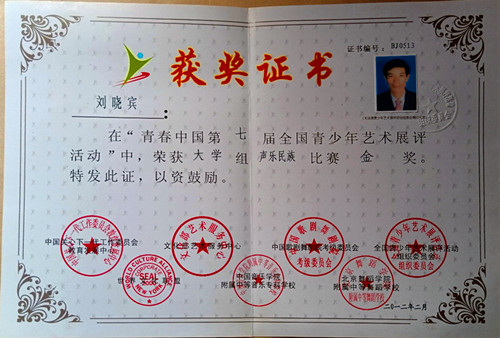 证书编号：BJ0513
获奖证书
刘晓宾：
在“青春中国第七届全国青少年艺术展评
活动”中，荣获大学组声乐民族比赛金奖。
特发此证，以资鼓励。
中国关心下一代工作委员会
文化部艺术服务中心
中国歌剧舞剧院考级委员会
全国青少年艺术展评活动
组织委员会
WORLD CULTURE ALLIANCE
SEAL
NEW YORK
中国音乐学院
附属中等音乐专科学校
北京舞蹈学院
附属中等舞蹈学校
考级委员会
组织委员会
二〇一二年二月